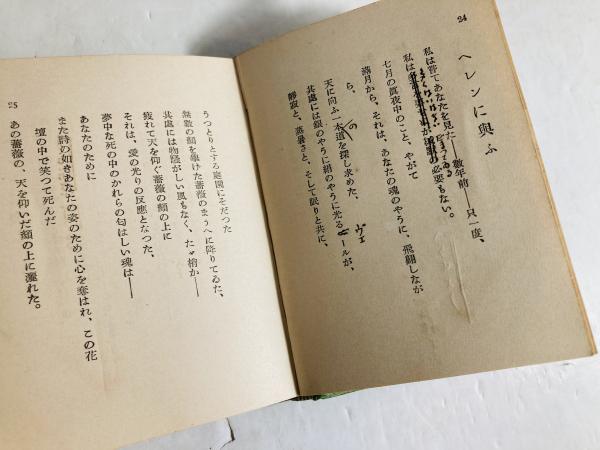 24
ヘレンに與ふ
私は嘗てあなたを見た——數年前——只一度、
私は の必要もない。
七月の眞夜中のこと、やがて
滿月から、それは、あなたの魂のやうに、飛翔しなが
ら、
天に向ふ一本道を探し求めた、
の
ヴェ
其處には銀のやうに絹のやうに光る ールが、
靜寂と、蒸暑さと、そして眠りと共に、
25
うつとりとする庭園にそだつた
無數の顏を擧げた薔薇のまうへに降りてゐた、
其處には物怪がしい風もなく、たゞ  か——
疲れて天を仰ぐ薔薇の顏の上に
それは、愛の光りの反應となつた、
夢中な死の中のかれらの匂はしい魂は——
あなたのために
また詩の如きあなたの姿のために心を奪はれ、この花
壇の中で笑つて死んだ
あの薔薇の、天を仰いだ顏の上に濡れた。